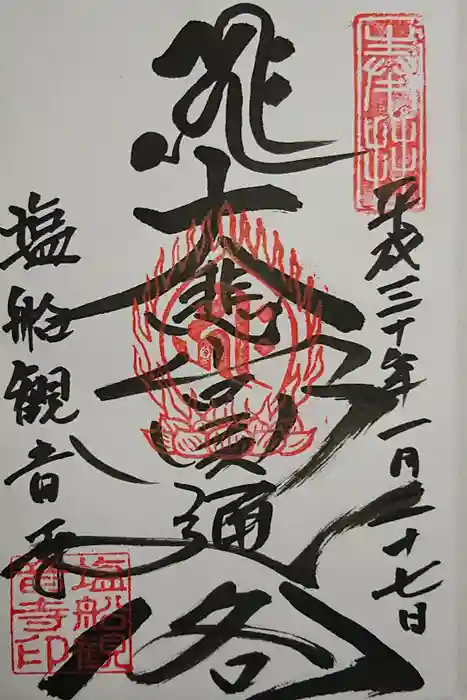 奉拝
平成三十年一月二十七日
大悲圓通閣
塩船観音寺
塩船観
音寺印